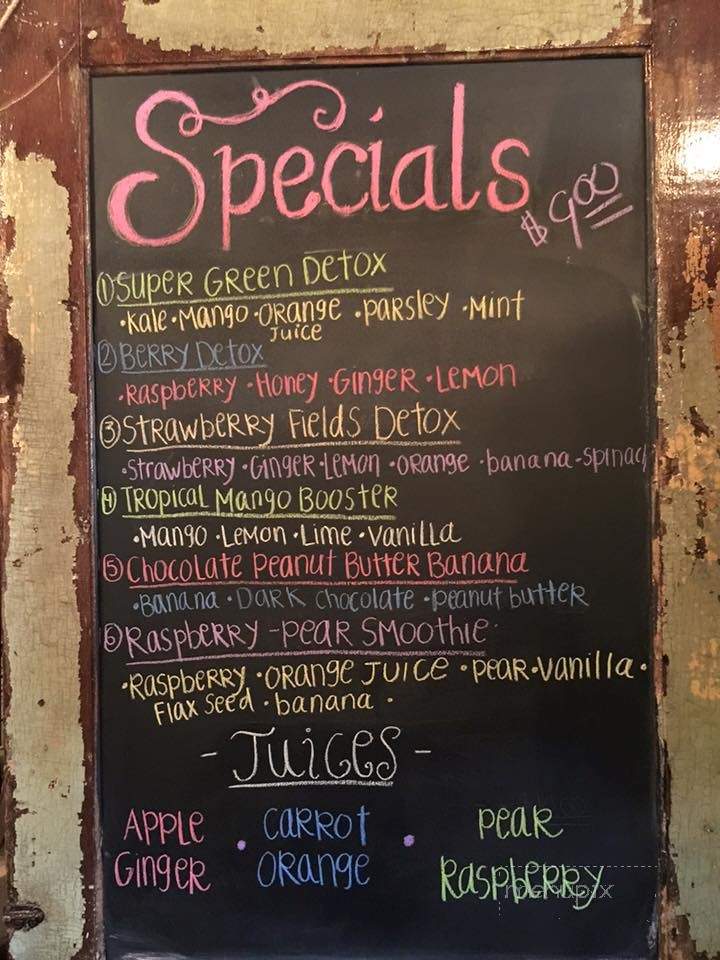 Specials
$9.00
① Super Green Detox
•Kale •Mango •Orange •Parsley •Mint
Juice
② Berry Detox
•Raspberry •Honey •Ginger •Lemon
③ Strawberry Fields Detox
•Strawberry •Ginger •Lemon •Orange •banana •Spinach
④ Tropical Mango Booster
•Mango •Lemon •Lime •Vanilla
⑤ Chocolate Peanut Butter Banana
•Banana •Dark Chocolate •Peanut butter
⑥ Raspberry - Pear Smoothie
•Raspberry •Orange Juice •Pear •Vanilla •
Flax Seed •banana •
- Juices -
Apple • Carrot • Pear
Ginger Orange Raspberry
menupix